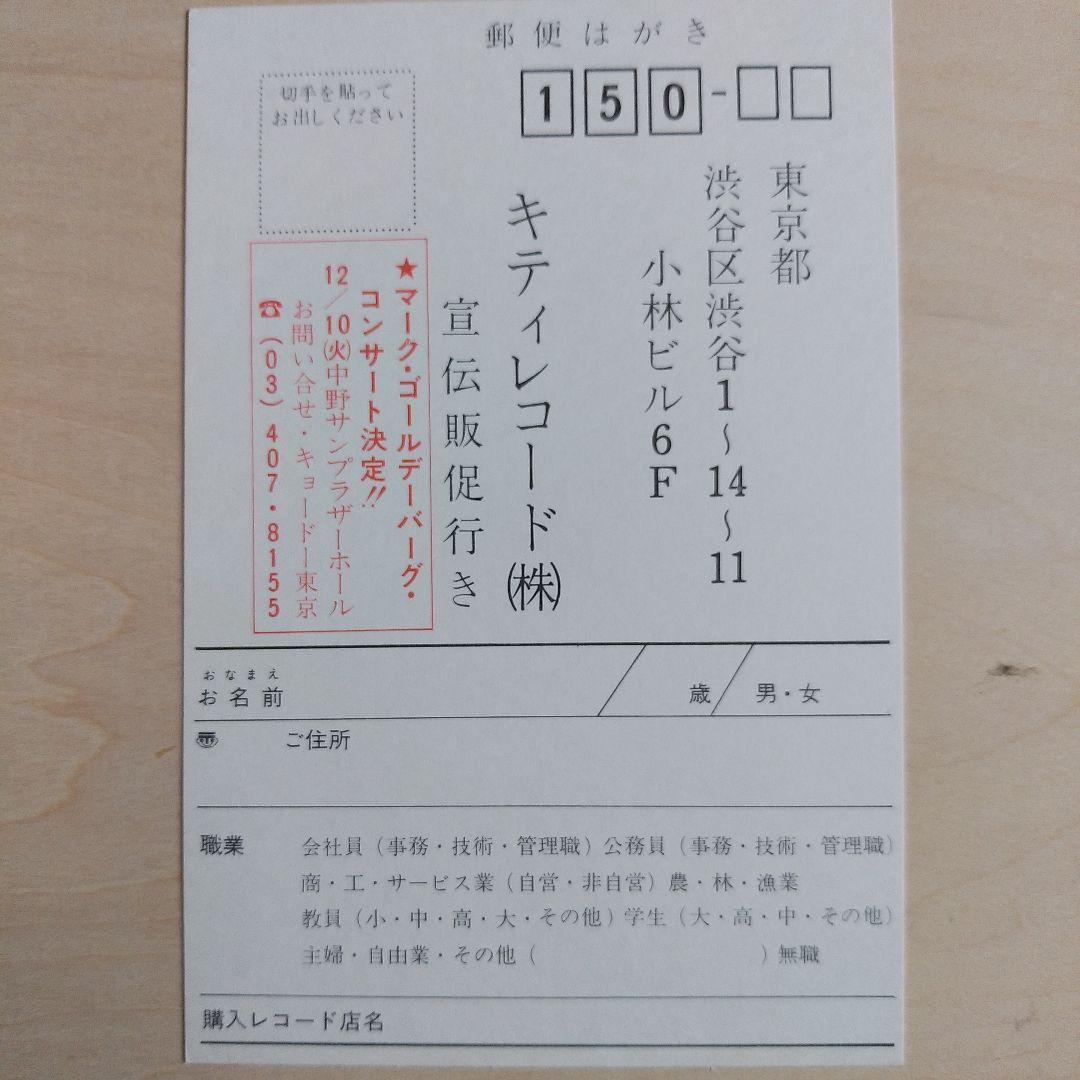 郵便はがき
切手を貼って
お出しください
150-
東京都
渋谷区渋谷1~14~11
小林ビル6F
キティレコード㈱
宣伝販促行き
★マーク・ゴールデーバーグ・
コンサート決定!!
12/10㈫中野サンプラザーホール
お問い合せ・キョードー東京
☎(03)407・8155
おなまえ
お名前 歳 男・女
〠 ご住所
職業 会社員(事務・技術・管理職)公務員(事務・技術・管理職)
商・工・サービス業(自営・非自営)農・林・漁業
教員(小・中・高・大・その他)学生(大・高・中・その他)
主婦・自由業・その他( )無職
購入レコード店名